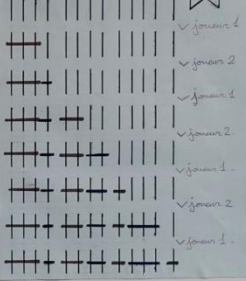 joueur 1
joueur 2
joueur 1
joueur 2.
joueur 1.
joueur 2
joueur 1.